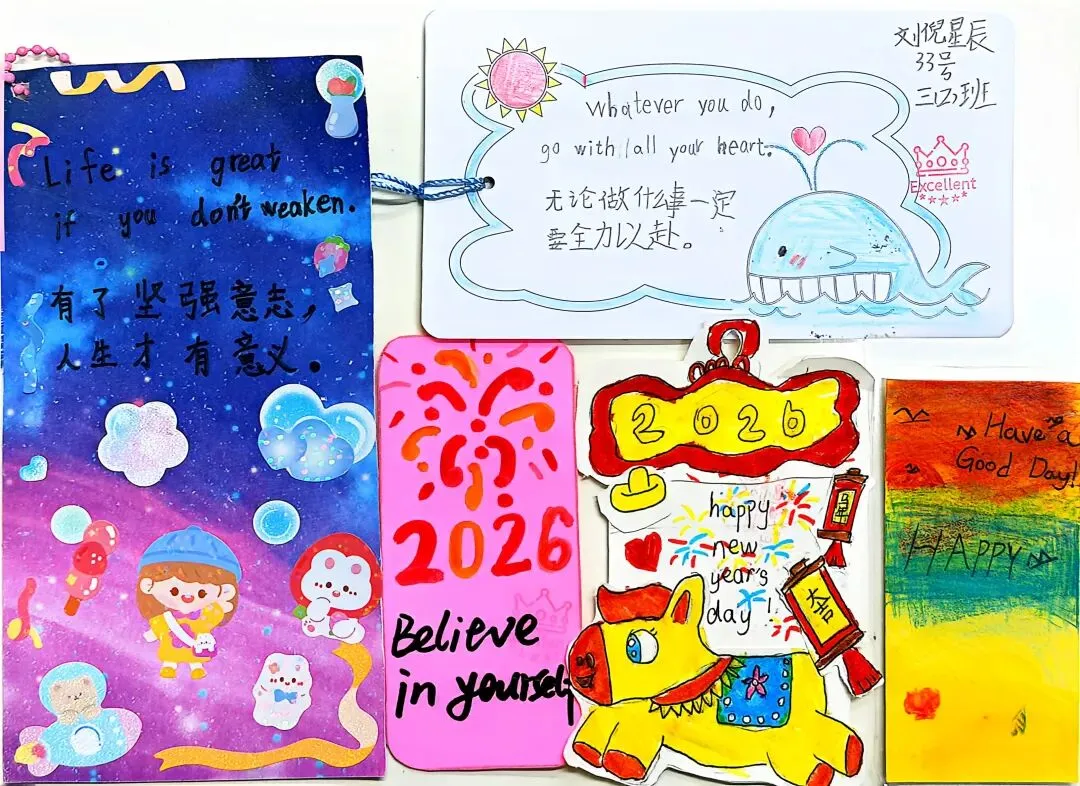 Life is great
if you don't weaken.
有了坚强意志，
人生才有意义。
Whatever you do,
go with all your heart.
无论做什么事一定
要全力以赴。
刘倪星辰
33号
三(5)班
Excellent
2026
Believe
in yourself
2026
happy
new
year's
day!
马年
大吉
Have a
Good Day!
HAPPY